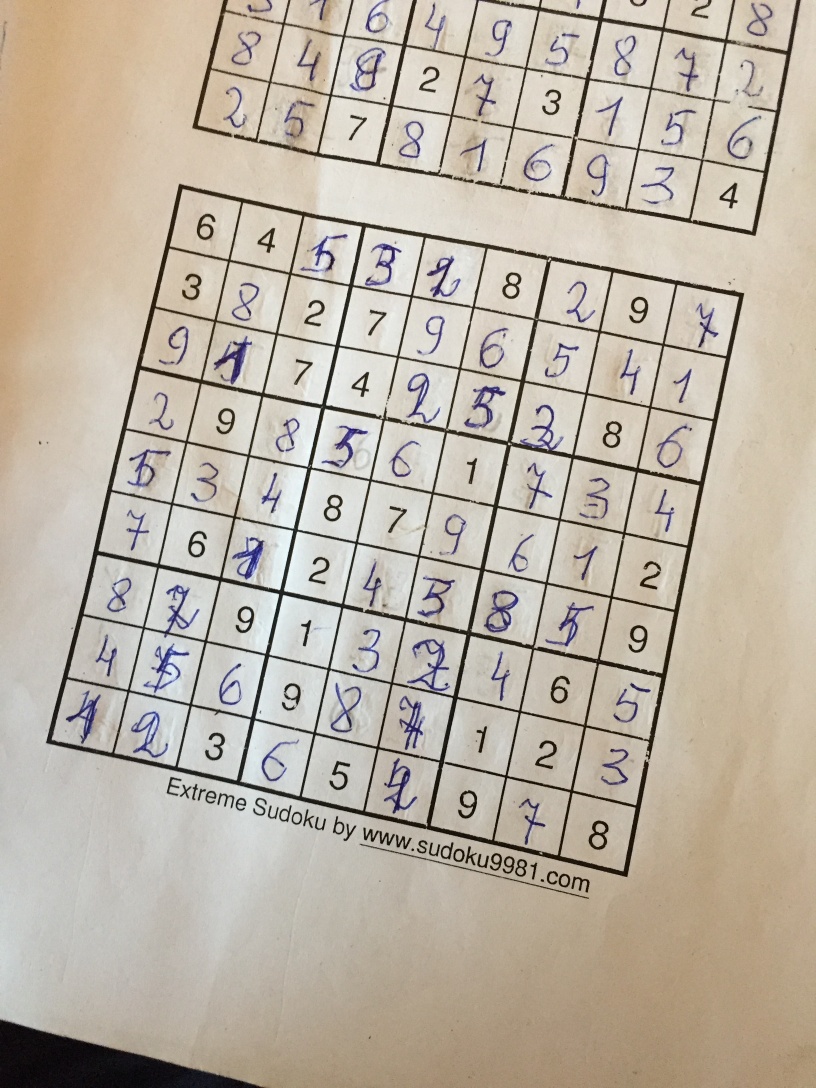 2 8
3 1 6 4 9 5 8 7 2
8 4 9 2 7 3 1 5 6
2 5 7 8 1 6 9 3 4
6 4 5 3 1 8 2 9 7
3 8 2 7 9 6 5 4 1
9 1 7 4 2 5 3 8 6
2 9 8 5 6 1 7 3 4
5 3 4 8 7 9 6 1 2
7 6 1 2 4 3 8 5 9
8 7 9 1 3 2 4 6 5
4 5 6 9 8 7 1 2 3
1 2 3 6 5 4 9 7 8
Extreme Sudoku by www.sudoku9981.com